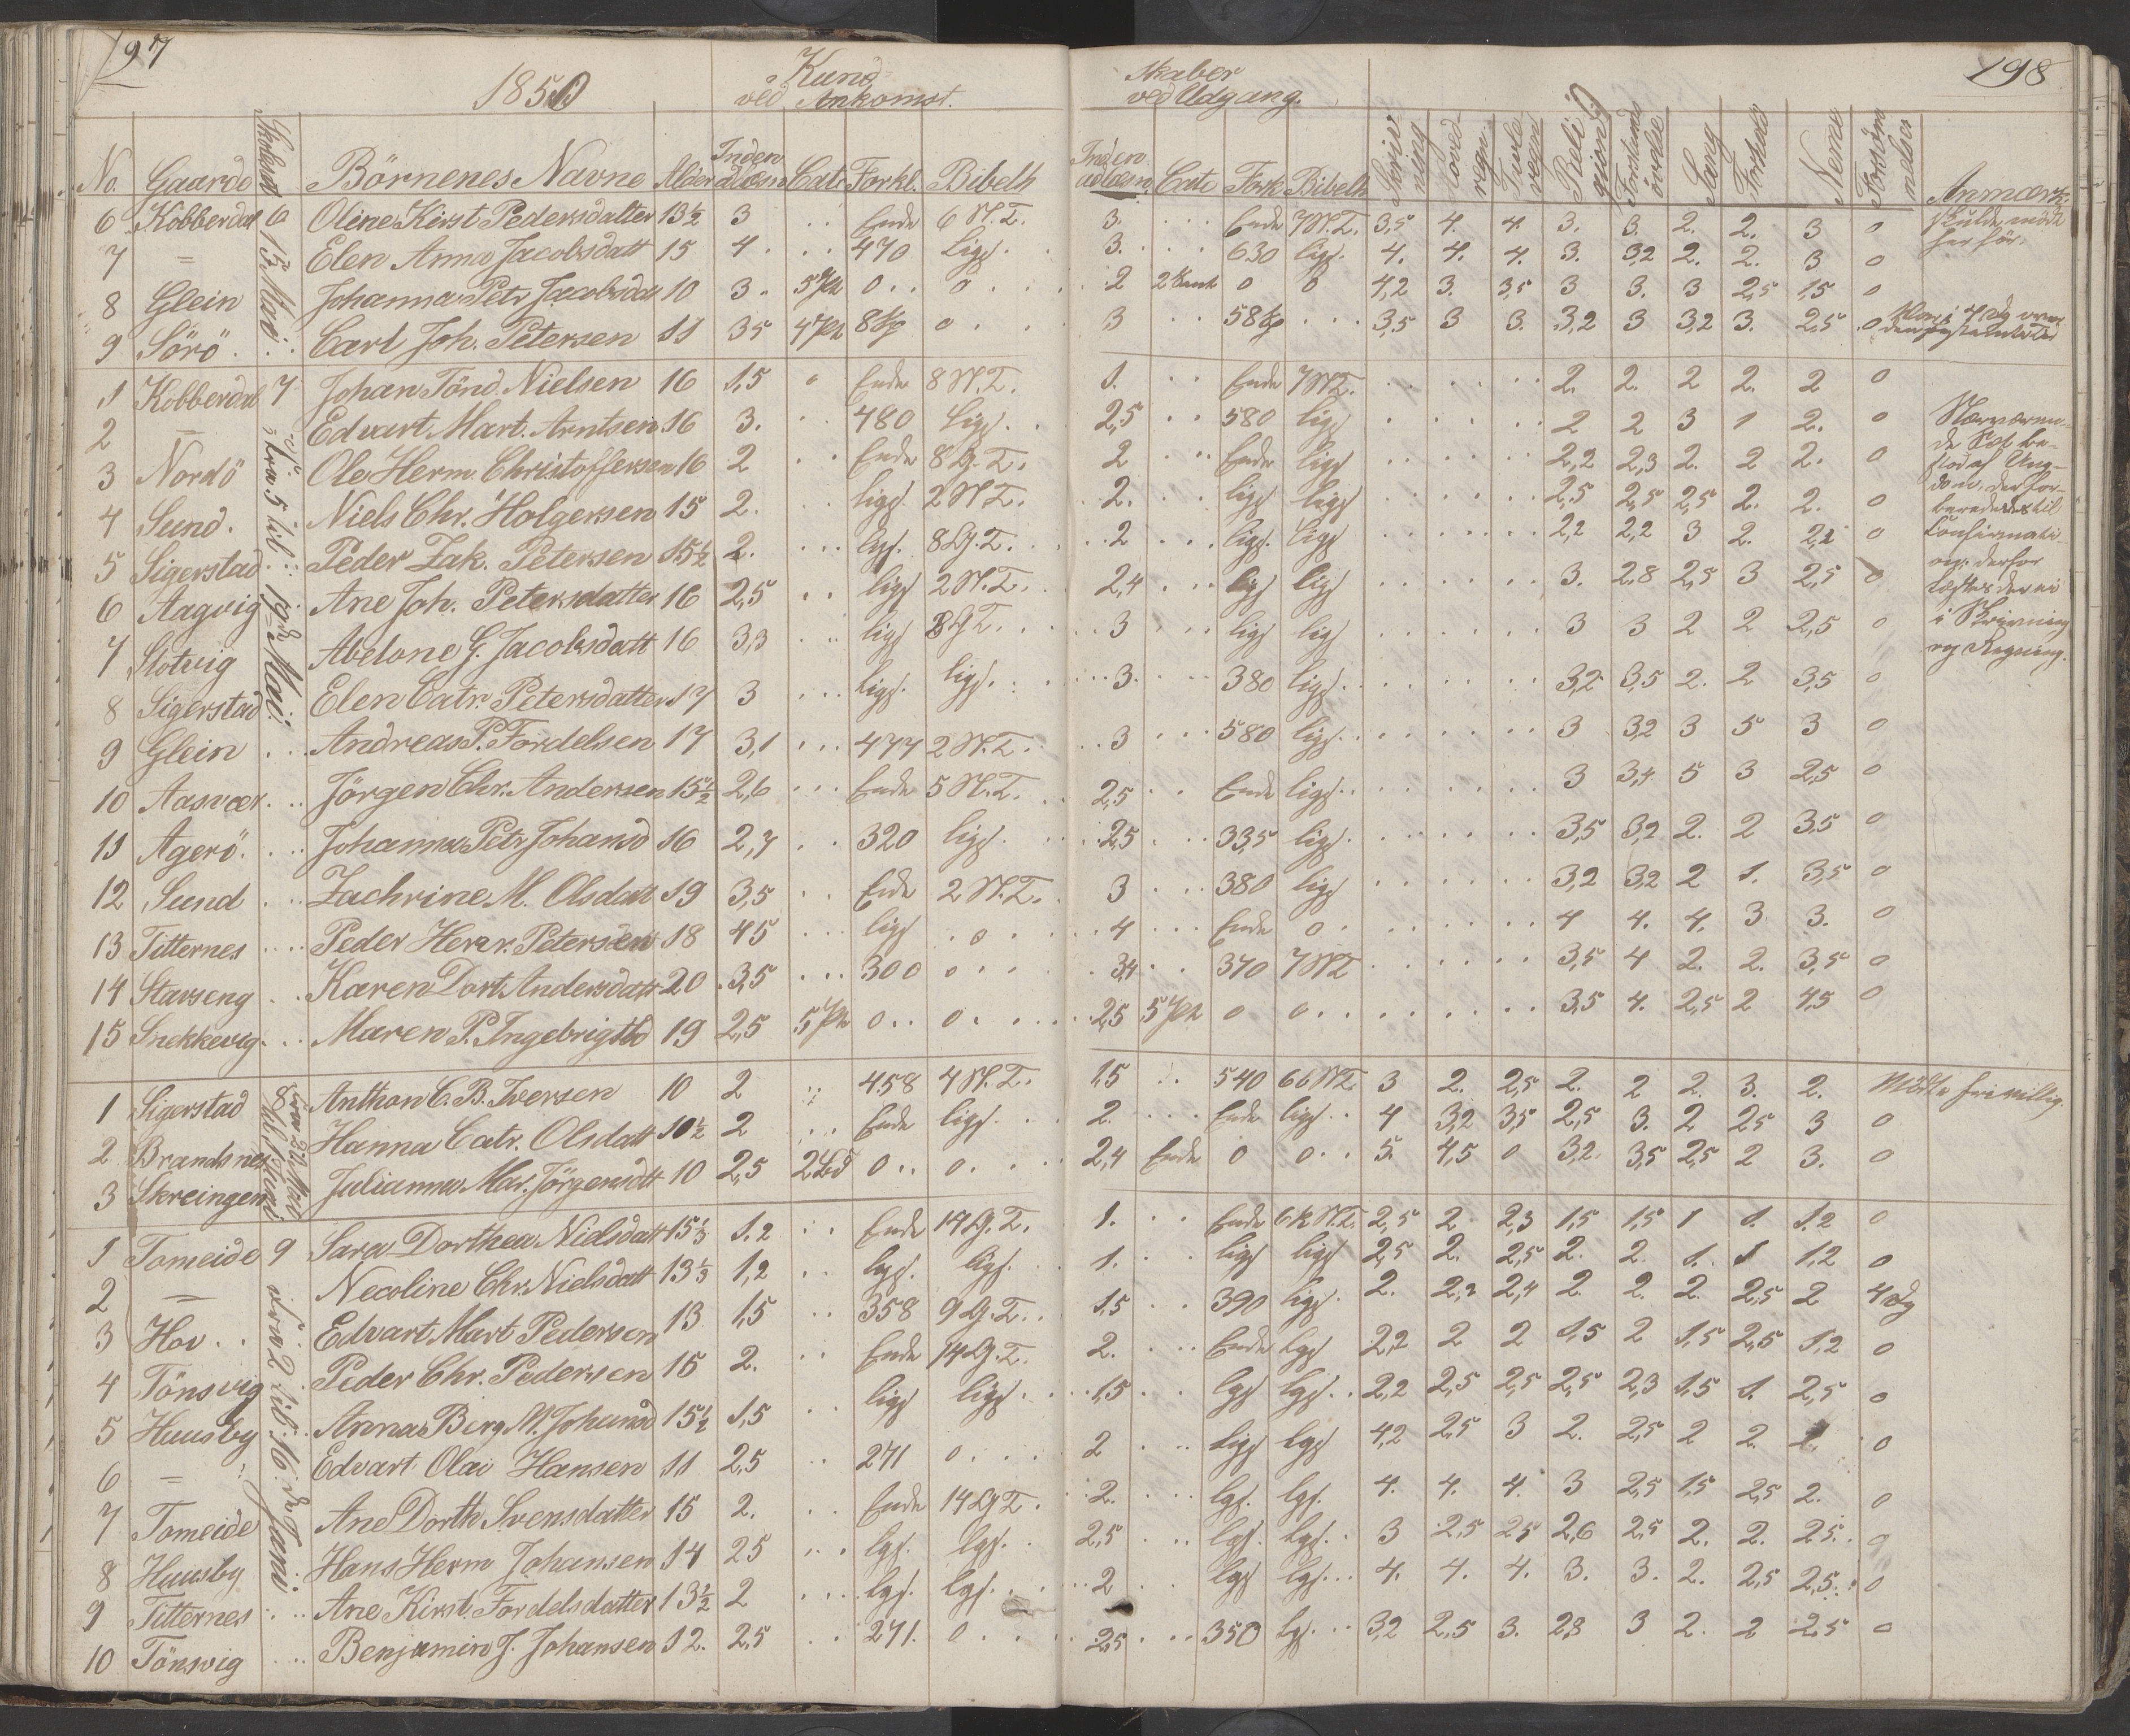 197
1850
Kund
ved Ankomst.
No. Gaarde Skolesatt Börnenes Navne Alder Inden adlæsn Cate Forkl. Bibelh
6 Kobberdal 6 Oline Kirst Pedersdatter 13½ 3 Ende 6 N.T.
7 = Elen Anna Jacobsdatt 15 4 470 ligs.
8 Glein Johanna Petr Jacobsdatt 10 3 5 Pt 0 0
9 Sörö Carl Joh. Petersen 11 3,5 4 Pt 8 Kp 0
1 Kobberdal 7 Johan Tönd. Nielsen 16 1,5 0 Ende 8 N.T.
2 = Edvart Mart. Arntsen 16 3. 480 ligs.
3 Nordö Ole Herm. Christoffersen 16 2 Ende 8 G.T.
4 Sund. Niels Chr. Holgersen 15 2. ligs. 2 N.T.
5 Sigerstad Peder Zak. Petersen 15½ 2. lgs. 8 G.T.
6 Aagvig Ane Joh. Petersdatter 16 2,5 ligs 2 N.T.
7 Slotvig Abelone G. Jacobsdatt 16 3,3 ligs 8 G.T.
8 Sigerstad Elen Catr. Petersdatter 17 3 ligs. ligs.
9 Glein Andreas P. Fordelsen 17 3,1 477 2 N.T.
10 Aasvær Jörgen Chr. Andersen 15½ 2,6 Ende 5 N.T.
11 Agerö Johanna Petr Johansd 16 2,7 320 ligs.
12 Sund Zachrine M. Olsdatt 19 3,5 Ende 2 N.T.
13 Titternes Peder Herm. Petersen 18 4,5 ligs 0
14 Stavseng Karen Dort Andersdatt 20 3,5 300 0
15 Snekkevig Maren P. Ingebrigtsd 19 2,5 5 Pt 0 0
fra 5 til 19de Mai
1 Sigerstad 8 Anthon C. B. Iversen 10 2 458 4 N.T.
2 Brandsnes Hanna Catr. Olsdatt 10½ 2 Ende ligs.
3 Skreingen Julianna Mar. Jörgensdtt 10 2,5 0 0
1 Tomeide 9 Sara Dorthea Nielsdatt 15⅓ 1.2 Ende 14 G.T.
2 = Necoline Chr. Nielsdatt 13⅓ 1,2 lgs. lgs.
3 Hov Edvart Mart Pedersen 13 1,5 358 9 G.T.
4 Tönsvig Peder Chr. Pedersen 15 2. Ende 14 G.T.
5 Huusby Anna Berg M. Johansd 15½ 1,5 ligs ligs.
6 = Edvart Olai Hansen 11 2,5 271 0
7 Tomeide Ane Dorth Svensdatter 15 2. Ende 14 G.T.
8 Huusby Hans Herm Johansen 14 2,5 lgs. lgs.
9 Titternes Ane Kirst. Fordelsdatter 13½ 2 lgs. lgs.
10 Tönsvig Benjamin J. Johansen 12. 2,5 271. 0
fra 2 til 16 de Juni
198
skaber
ved Udgang.
Inden adlæsn Cate Fork Bibelh Skriv ning Hoved regn. Tavle regn Reli gion Forstands övelse Sang Forhold Nemme Forsöm melser Anmærk.
3. Ende 7 N.T. 3,5 4. 4. 3. 3. 2. 2. 3 0
3. 630 ligs. 4. 4. 4. 3. 3,2 2. 2. 3 0
2 0 0 4,2 3. 3,5 3 3. 3 2,5 1,5 0
3 58 Kp 3,5 3 3. 3,2 3 3,2 3. 2,5 0
1. Ende 7 N.T. 2. 2. 2 2. 2 0
2,5 580 ligs 2 2 3 1 2. 0
2 Ende ligs 2,2 2,3 2. 2 2. 0
2. ligs ligs 2,5 2,5 2,5 2. 2. 0
2 ligs. ligs 2,2 2,2 3 2. 2,2 0
2,4 ligs ligs 3. 2.8 2,5 3 2,5 0
3 ligs ligs 3 3 2 2 2,5 0
Nærværen-
de Sæt be-
stod af Ung-
dom, der for-
beredes til
Confirmati-
on, derfor
læstes der ei
i Skrivning
og Regning.
3. 380 ligs. 3,2 3,5 2. 2 3,5 0
3 580 ligs. 3 3,2 3 5 3 0
2,5 Ende ligs. 3 3,4 5 3 2,5 0
2,5 335 ligs. 3,5 3,2 2. 2 3,5 0
3 380 ligs 3,2 3,2 2 1. 3,5 0
4 Ende 0 4 4. 4. 3 3. 0
3,4 370 7 N.T. 3,5 4 2. 2. 3,5 0
2,5 5 Pt 0 0 3,5 4. 2,5 2 4,5 0
1,5 540 66 N.T. 3 2. 2,5 2. 2 2. 3. 2. Mödte frivillig.
2. Ende ligs. 4 3,2 3,5 2,5 3. 2 2,5 3 0
2,4 Ende 0 0 5. 4,5 0 3,2. 3,5 2,5 2 3. 0
1. Ende 62 N.T. 2,5 2 2,3 1,5 1,5 1 1. 1,2 0
1. ligs ligs 2,5 2. 2,5 2. 2. 1. 1 1,2 0
1,5 390 ligs. 2. 2,2 2,4 2. 2. 2. 2,5 2 4 Dg
2. Ende lgs 2,2 2 2 1,5 2 1,5 2,5 1,2 0
1,5 lgs lgs. 2,2 2,5 2,5 2,5 2,3 1,5 1. 2,5 0
2 ligs lgs 4,2 2,5 3 2. 2,5 2 2. 0
2. lgs. lgs. 4. 4. 4. 3 2,5 1,5 2,5 2. 0
2,5 lgs. lgs. 3 2,5 2,5 2,6 2,5 2. 2. 2,5. 0
2 lgs lgs. 4. 4. 4. 3. 3. 2. 2,5 2,5. 0
2,5 350 lgs. 3,2 2,5 3. 2,8 3 2. 2 2.5 0